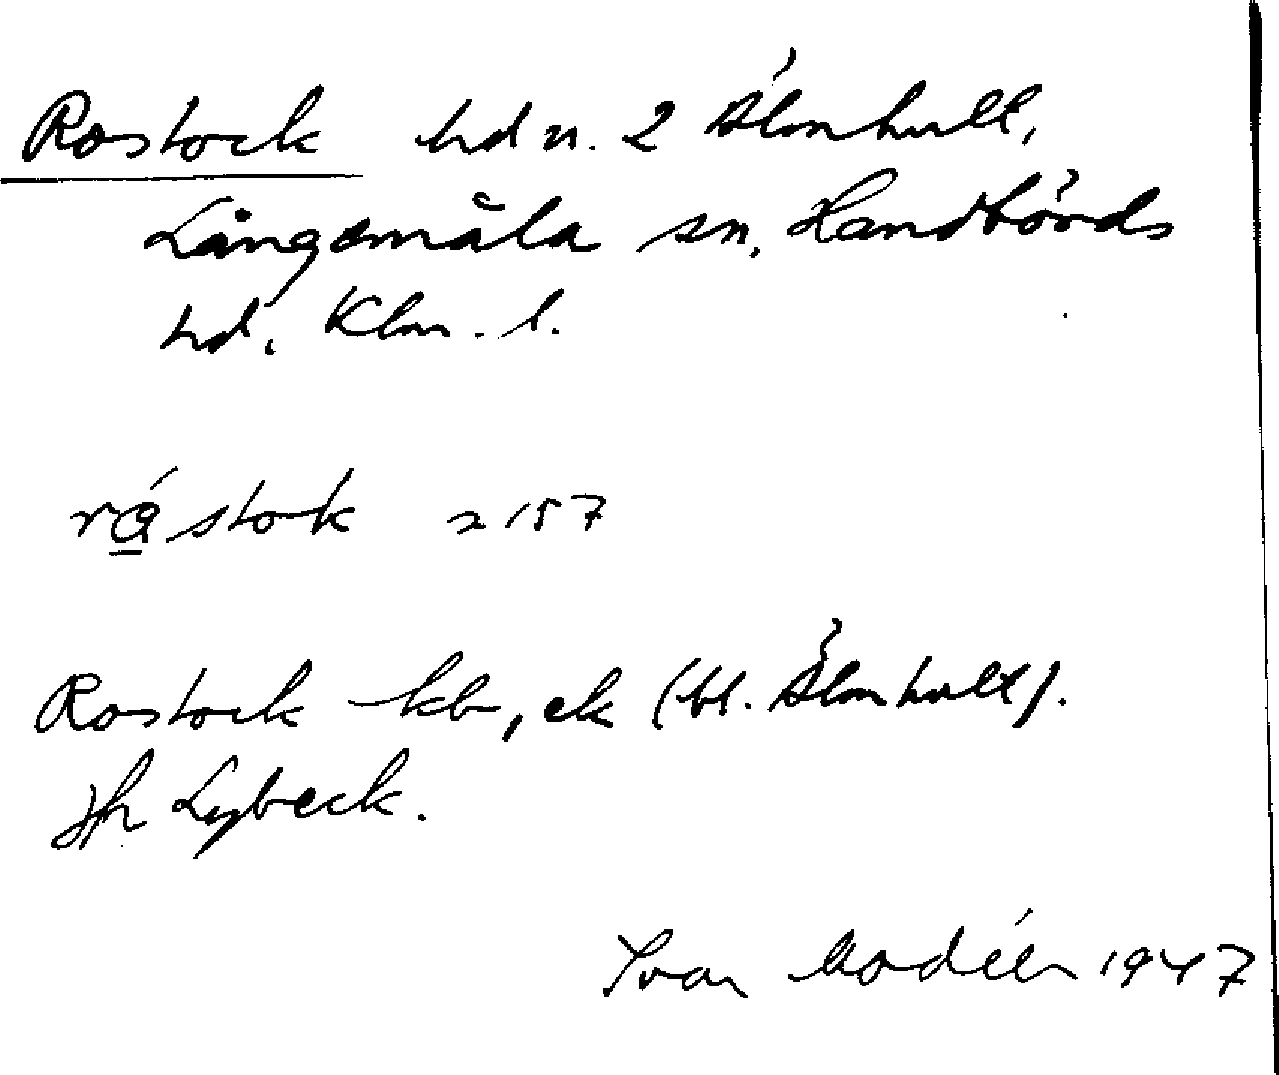 Rostock hdn. 2 Älmhult,
Långemåla sn, Handbörds
hd. Klm. l.
rǻstok 2157
Rostock kb, ek (bl. Älmhult).
Jfr Lybeck.
Ivar Modéer 1947